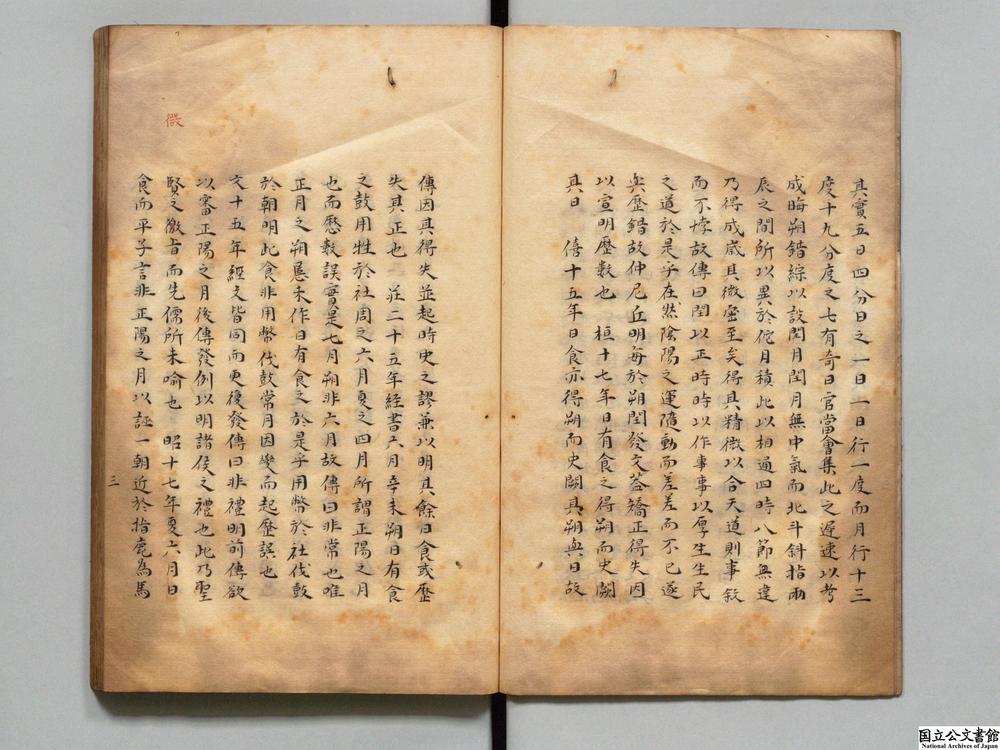 其實五日四分日之一日一日行一度而月行十三
度十九分度之七有奇日官當會集此之遲速以考
成晦朔錯綜以設閏月閏月無中氣而北斗斜指兩
辰之間所以異於佗月積此以相通四時八節無違
乃得成歲其微密至矣得其精微以合天道則事敘
而不悖故傳曰閏以正時時以作事事以厚生生民
之道於是乎在然陰陽之運隨動而差差而不已遂
與歷錯故仲尼丘明每於朔閏發文葢矯正得失因
以宣明歷數也 桓十七年日有食之得朔而史闕
其日 僖十五年日食亦得朔而史闕其朔與日故
傳因其得失並起時史之謬兼以明其餘日食或歷
失其正也 莊二十五年經書六月辛未朔日有食
之鼓用牲於社周之六月夏之四月所謂正陽之月
也而歷數誤實是七月朔非六月故傳曰非常也唯
正月之朔慝未作日有食之於是乎用幣於社伐鼓
於朝明此食非用幣伐鼓常月因變而起歷誤也
文十五年經文皆同而更復發傳曰非禮明前傳欲
以審正陽之月後傳發例以明諸侯之禮也此乃聖
賢之微旨而先儒所未喻也 昭十七年夏六月日
食而平子言非正陽之月以誣一朝近於指鹿為馬
三
國立公文書館
National Archives of Japan